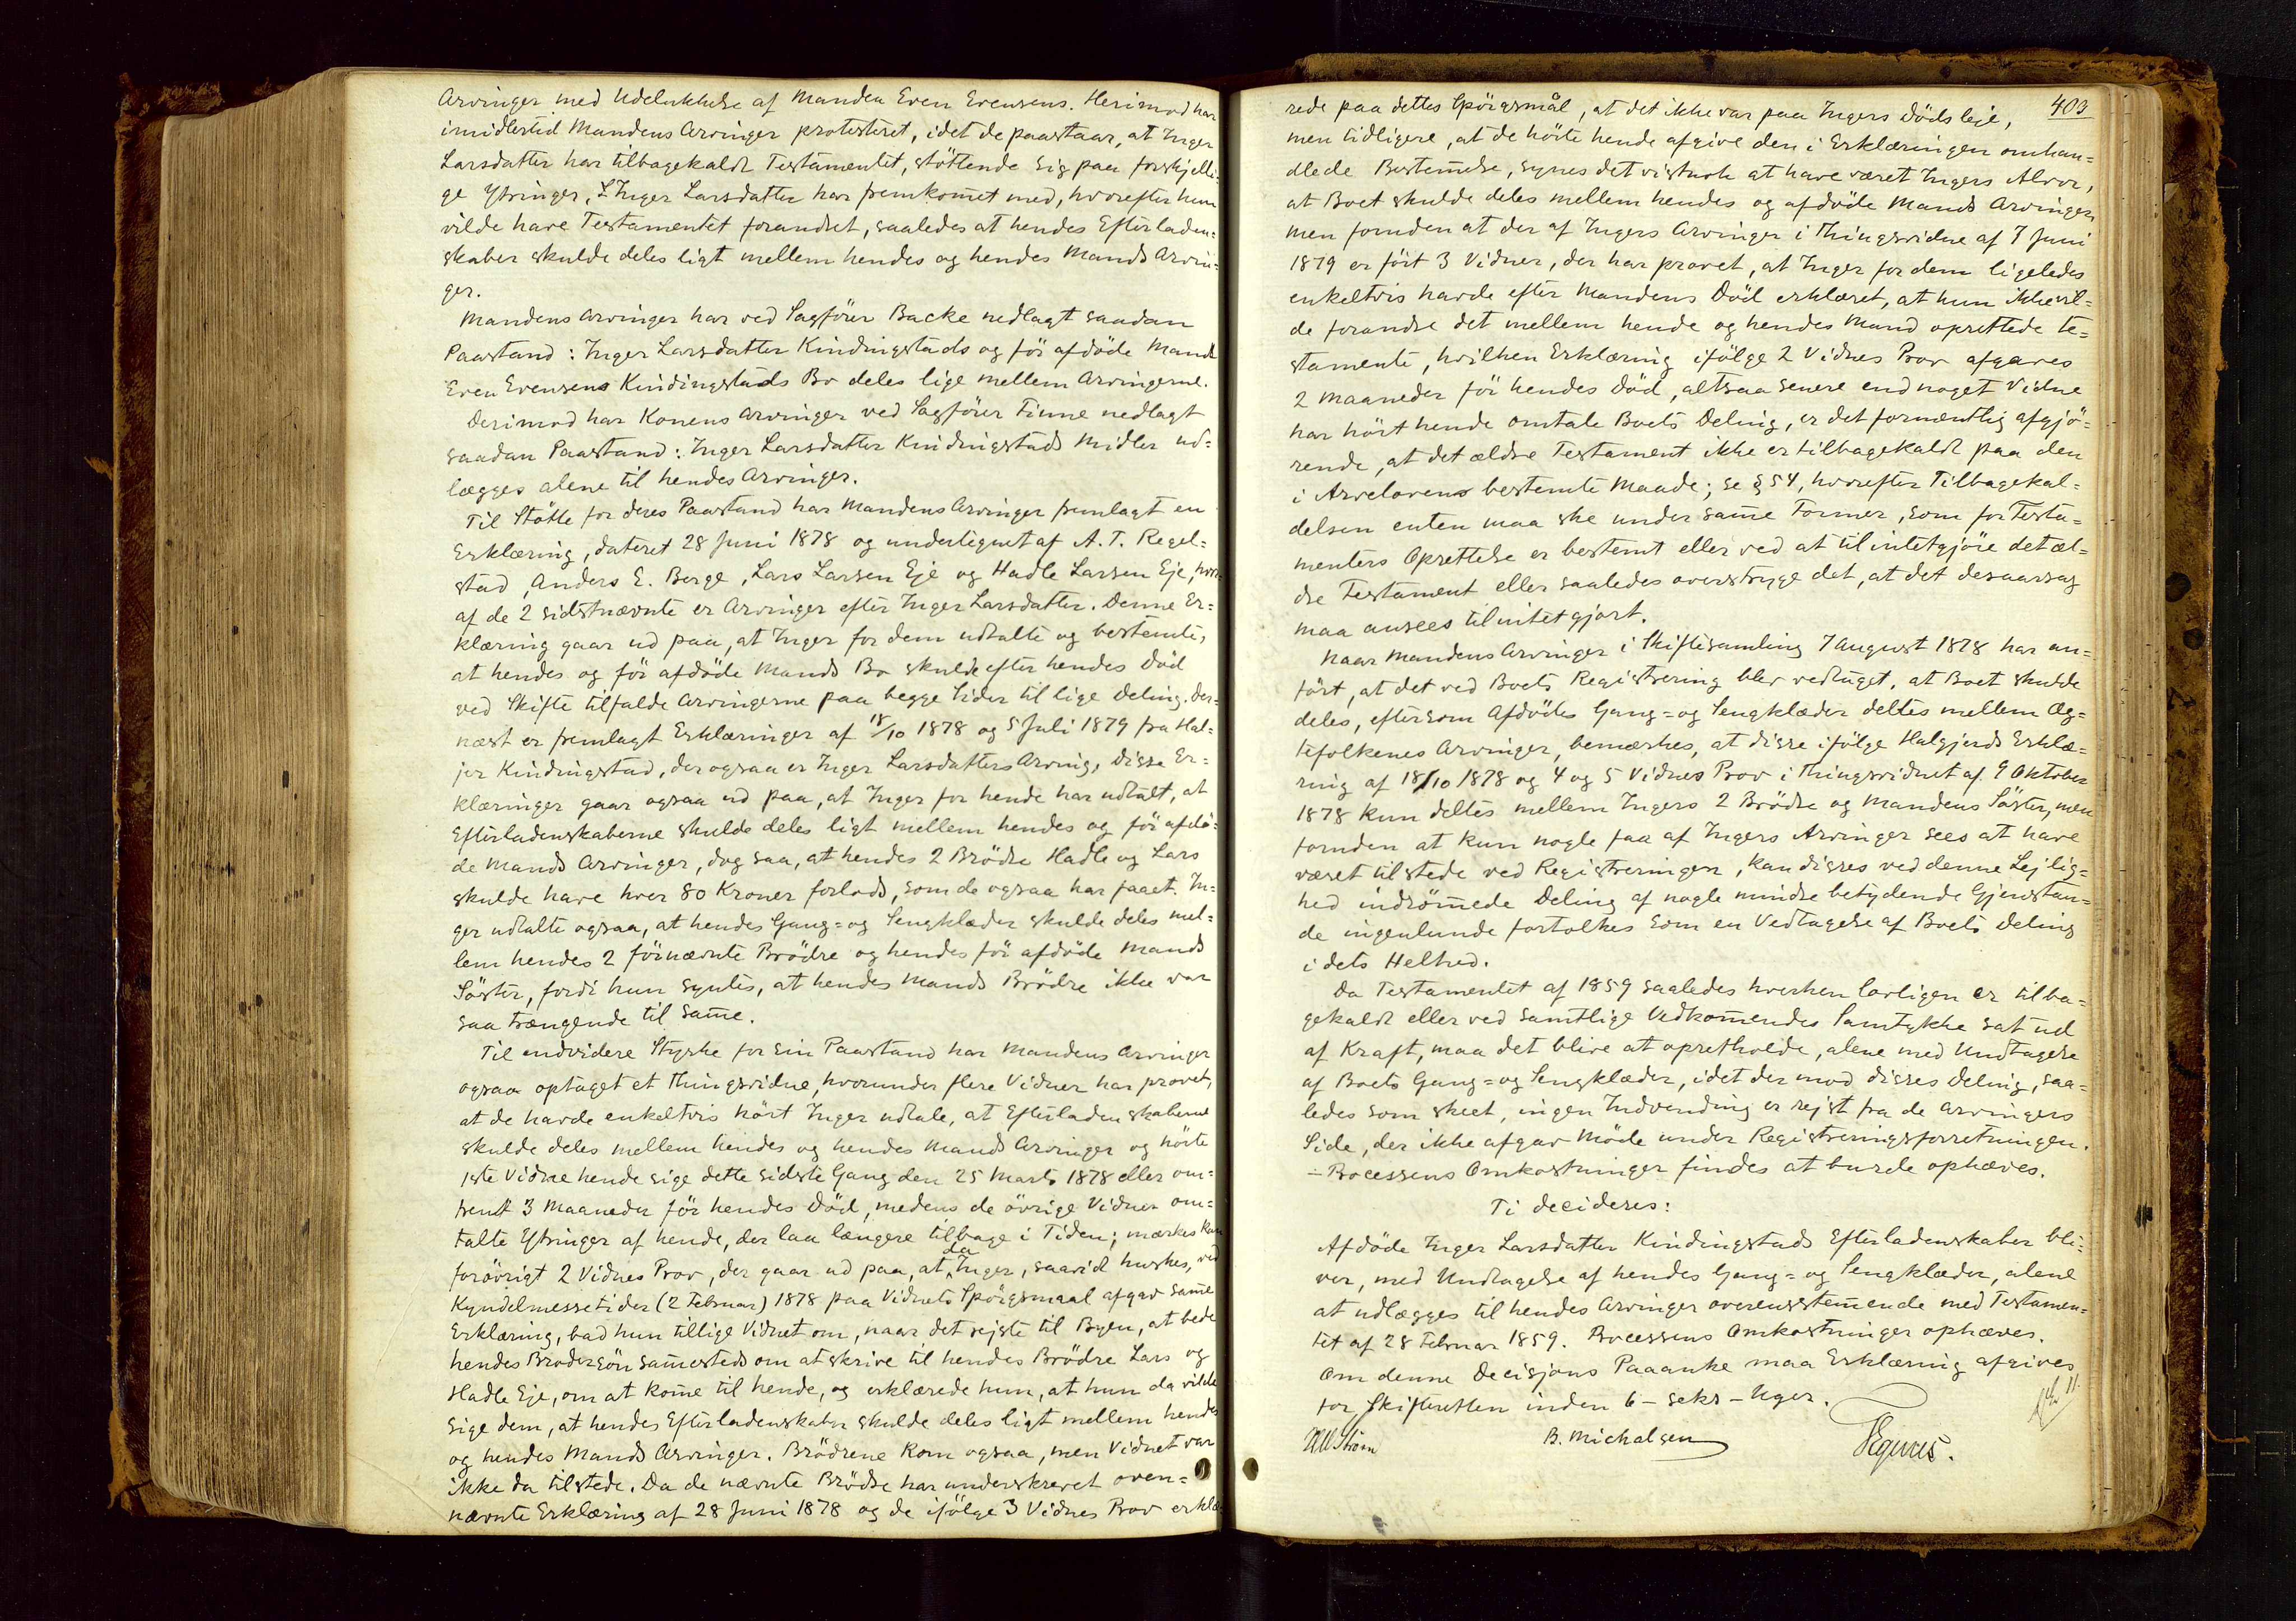 Arvinger med Udelukkelse af Manden Even Evensens. Herimod har
imidlertid Mandens Arvinger protesteret, idet de paastaar, at Inger
Larsdatter har tilbagekaldt Testamentet, støttende sig paa forskjelli-
ge Ytringer, Inger Larsdatter har fremkom̄et med, hvorefter hun
vilde have Testamentet forandret, saaledes at hendes Efterladen-
skaber skulde deles ligt mellem hendes og hendes Mands Arvin-
ger.
Mandens Arvinger har ved Sagfører Backe nedlagt saadan
Paastand: Inger Larsdatter Kindingstads og før afdøde Mands
Even Evensens Kindingstads Bo deles lige mellem Arvingerne.
Derimod har Konens Arvinger ved Sagfører Finne nedlagt
saadan Paastand: Inger Larsdatter Kindingstads Midler ud-
lægges alene til hendes Arvinger.
Til Støtte for deres Paastand har Mandens Arvinger fremlagt en
Erklæring, dateret 28 Juni 1878 og undertegnet af A. T. Regel-
stad, Anders E. Berge, Lars Larsen Eje og Hadle Larsen Eje, hvor-
af de 2 sidstnævnte er Arvinger efter Inger Larsdatter. Denne Er-
klæring gaar ud paa, at Inger for dem udtalte og bestemte,
at hendes og før afdøde Mands Bo skulde efter hendes Død
ved Skifte tilfalde Arvingerne paa begge Sider til lige Deling. Der-
næst er fremlagt Erklæringer af 18/10 1878 og 5 Juli 1879 fra Hal-
jer Kindingstad, der ogsaa er Inger Larsdatters Arving, Disse Er-
klæringer gaar ogsaa ud paa, at Inger for hende har udtalt, at
Efterladenskaberne skulde deles ligt mellem hendes og før afdø-
de Mands Arvinger, dog saa, at hendes 2 Brødre Hadle og Lars
skulde have hver 80 Kroner forlods, som de ogsaa har faaet. In-
ger udtalte ogsaa, at hendes Gang- og Sengklæder skulde deles mel-
lem hendes 2 førnævnte Brødre og hendes før afdøde Mands
Søster, fordi hun syntes, at hendes Mands Brødre ikke var
saa trængende til sam̄e.
Til endvidere Styrke for sin Paastand har Mandens Arvinger
ogsaa optaget et Thingsvidne, hvorunder flere Vidner har provet,
at de havde enkeltvis hørt Inger udtale, at Efterladenskaberne
skulde deles mellem hendes og hendes Mands Arvinger og hørte
1ste Vidne hende sige dette sidste Gang den 25 Marts 1878 eller om-
trent 3 Maaneder før hendes Død, medens de øvrige Vidner om-
talte Ytringer af hende, der laa længere tilbage i Tiden; mærkes kan
forøvrigt 2 Vidnes Prov, der gaar ud paa, at da Inger, saavid huskes, ved
Kyndelmessetider (2 Februar) 1878 paa Vidnets Spørgsmaal afgav sam̄e
Erklæring, bad hun tillige Vidnet om, naar det rejste til Byen, at bede
hendes Brodersøn sam̄esteds om at skrive til hendes Brødre Lars og
Hadle Eje, om at kom̄e til hende, og erklærede hun, at hun da vilde
sige dem, at hendes Efterladenskaber skulde deles ligt mellem hendes
og hendes Mands Arvinger. Brødrene kom ogsaa, men Vidnet var
ikke da tilstede. Da de nævnte Brødre har underskrevet oven-
nævnte Erklæring af 28 Juni 1878 og de ifølge 3 Vidnes Prov erklæ-
403
rede paa dettes Spørgsmål, at det ikke var paa Ingers Dødsleje,
men tidligere, at de hørte hende afgive den i Erklæringen omhan-
dlede Bestem̄else, synes det vistnok at have været Ingers Alvor,
at Boet skulde deles mellem hendes og afdøde Mands Arvinger,
men foruden at der af Ingers Arvinger i Thingsvidne af 7 Juni
1879 er ført 3 Vidner, der har provet, at Inger for dem ligeledes
enkeltvis havde efter Mandens Død erklæret, at hun ikke vil-
de forandre det mellem hende og hendes Mand oprettede te-
stamente, hvilken Erklæring ifølge 2 Vidnes Prov afgaves
2 Maaneder før hendes Død, altsaa senere end noget Vidne
har hørt hende omtale Boets Deling, er det fornemtlig afgjø-
rende, at det ældre Testament ikke er tilbagekaldt paa den
i Arvelovens bestemte Maade; se § 54, hvorefter Tilbagekal-
delsen enten maa ske under sam̄e Former, som for Testa-
menters Oprettelse er bestemt eller ved at tilintetgjøre det æl-
dre Testament eller saaledes overstryge det, at det desaarsag
maa ansees tilintetgjort.
Naar Mandens Arvinger i Skiftesamling 7 August 1878 har an-
ført, at det ved Boets Registrering blev vedtaget, at Boet skulde
deles, eftersom Afdødes Gang- og Sengklæder deltes mellem Æg-
tefolkenes Arvinger, bemærkes, at disse ifølge Halgjerds Erklæ-
ring af 18/10 1878 og 4 og 5 Vidnes Prov i Thingsvidnet af 9 Oktober
1878 kun deltes mellem Ingers 2 Brødre og Mandens Søster, men
foruden at kun nogle faa af Ingers Arvinger sees at have
været tilstede ved Registreringen, kan disses ved denne Lejlig-
hed indrøm̄ede Deling af nogle mindre betydende Gjenstan-
de ingenlunde fortolkes som en Vedtagelse af Boets Deling
i dets Helhed.
Da Testamentet af 1859 saaledes hverken lovligen er tilba-
gekaldt eller ved samtlige Vedkom̄endes Samtykke sat ud
af Kraft, maa det blive at opretholde, alene med Undtagelse
af Boets Gang- og Sengklæder, idet der mod disses Deling, saa-
ledes som skeet, ingen Indvending er rejst fra de Arvingers
Side, der ikke afgav Møde under Registreringsforretningen.
– Processens Omkostninger findes at burde ophæves.
Ti decideres:
Afdøde Inger Larsdatter Kindingstads Efterladenskaber bli-
ver, med Undtagelse af hendes Gang- og Sengklæder, alene
at udlægges til hendes Arvinger overensstem̄ende med Testamen-
tet af 28 Februar 1859. Processens Omkostninger ophæves.
Om denne Decisjons Paaanke maa Erklæring afgives
for Skifteretten inden 6 – seks – Uger.
B. Michalsen